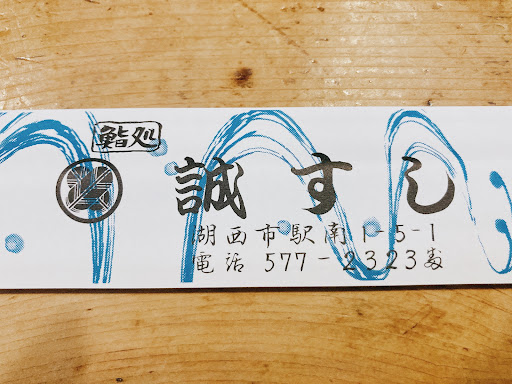 鮨処
誠すし
湖西市駅南1-5-1
電話 577-2323